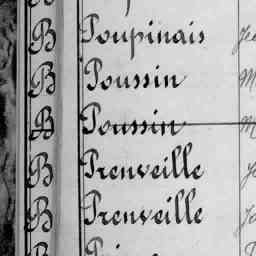 B Poupinais
B Poussin M
B Poussin M
B Prenveille
B Prenveille
B